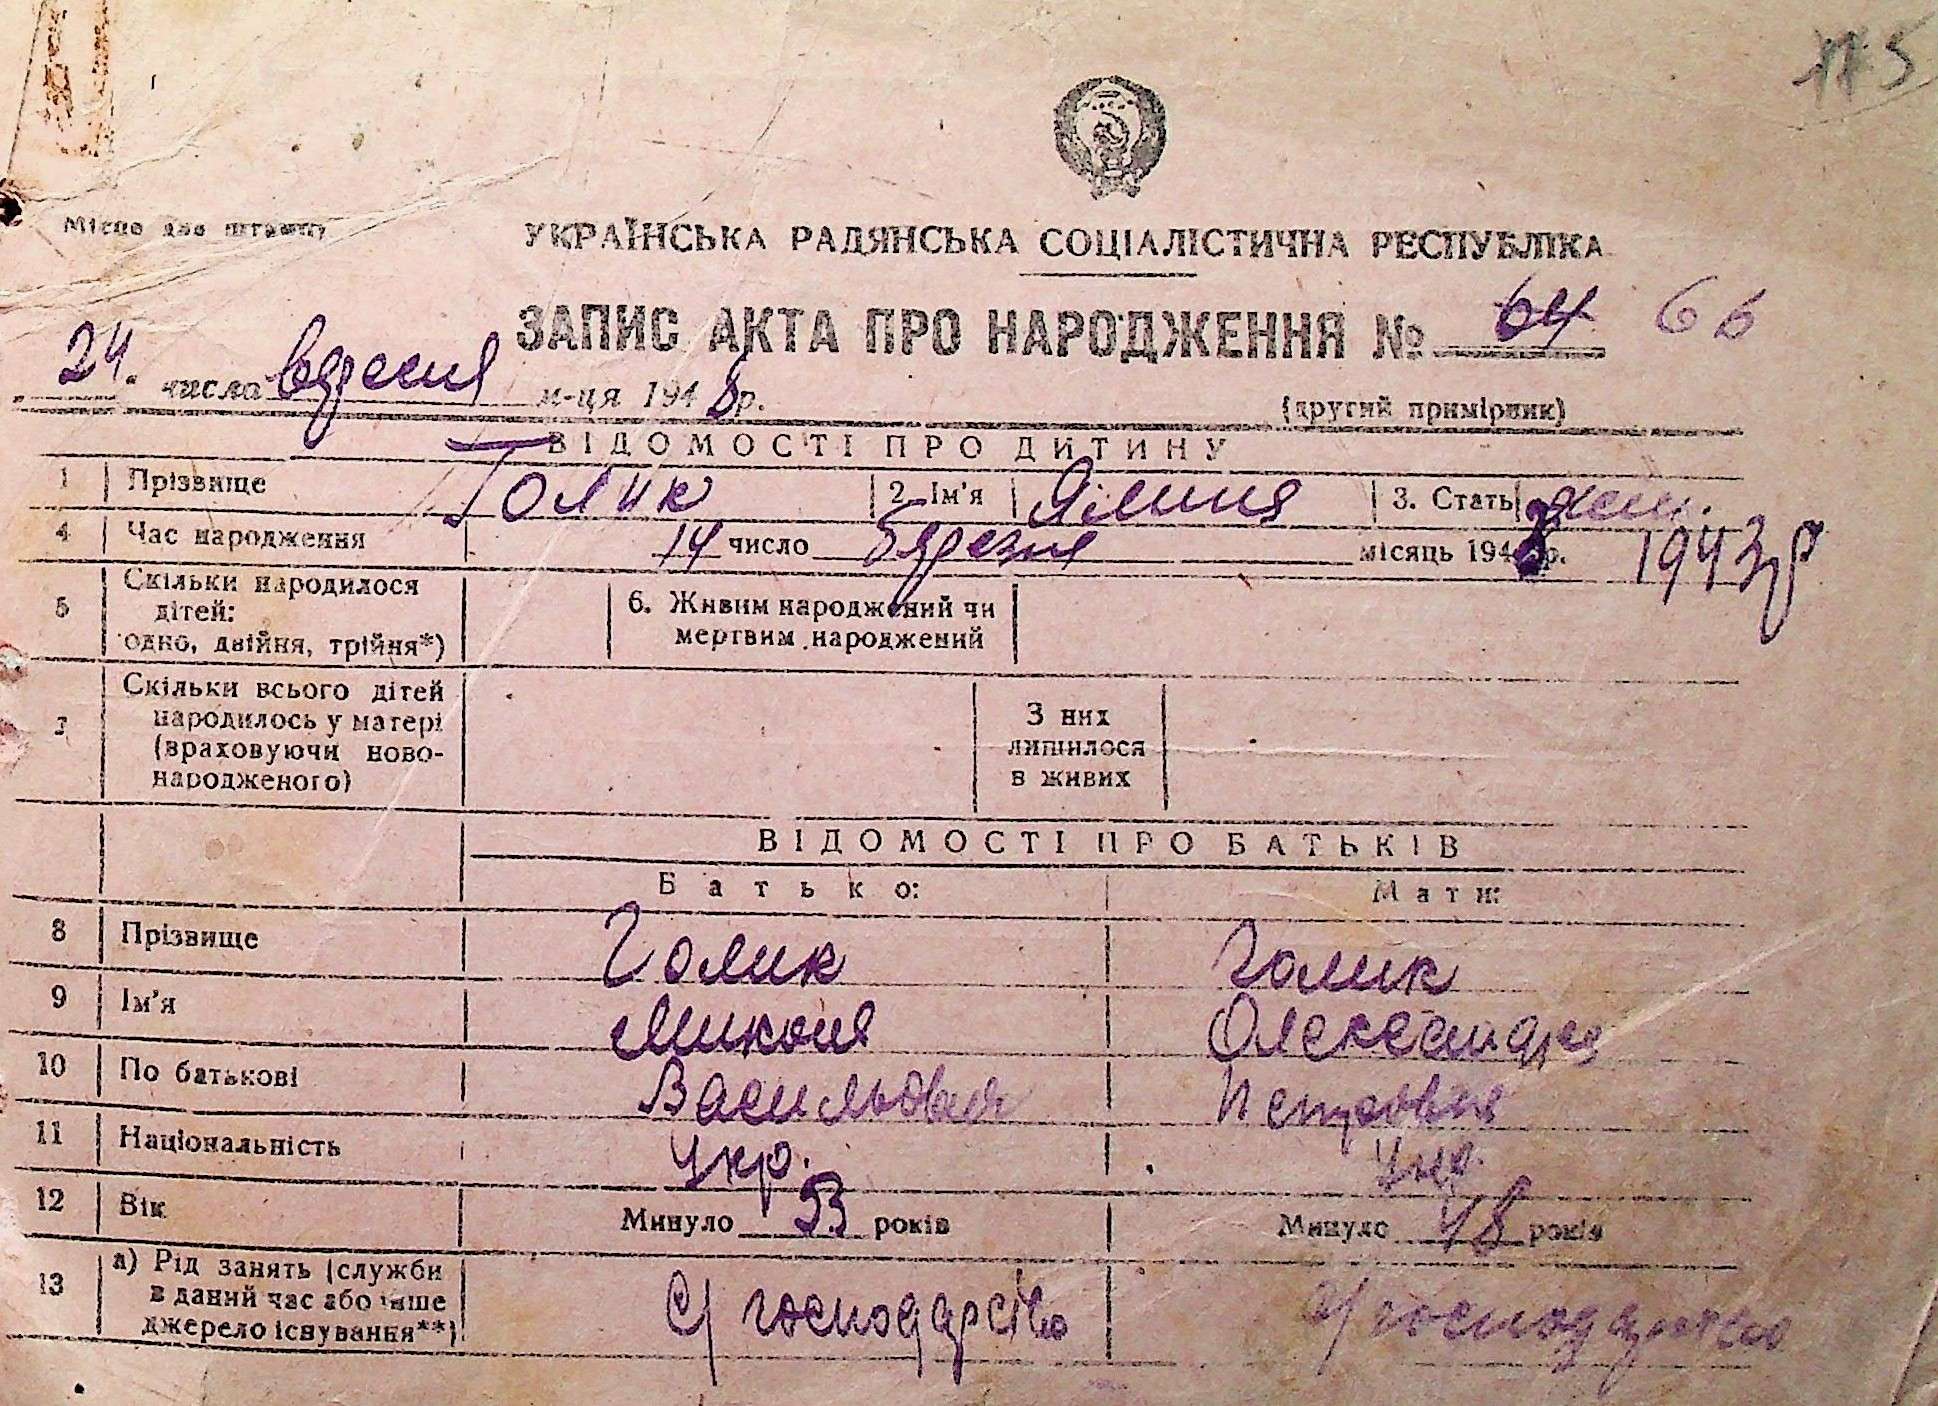 Місце для штампу
УКРАЇНСЬКА РАДЯНСЬКА СОЦІАЛІСТИЧНА РЕСПУБЛІКА
ЗАПИС АКТА ПРО НАРОДЖЕННЯ № 64 66
24. числа вересня м-ця 1948 р.
(другий примірник)
ВІДОМОСТІ ПРО ДИТИНУ
1 Прізвище Голик 2. Ім'я 3. Стать жін.
4 Час народження 14 число березня місяць 194 р. 1943 р
5 Скільки народилося дітей: одно, двійня, трійня*)
6. Живим народжений чи мертвим народжений
7 Скільки всього дітей народилось у матері (враховуючи ново-народженого)
З них лишилося в живих
ВІДОМОСТІ ПРО БАТЬКІВ
Батько: Мати:
8 Прізвище Голик Голик
9 Ім'я Микола Олександра
10 По батькові Васильович Петровна
11 Національність Укр. Укр.
12 Вік Минуло 53 років Минуло 48 років
13 а) Рід занять (служби в даний час або інше джерело існування**) С/господарство с/господарство